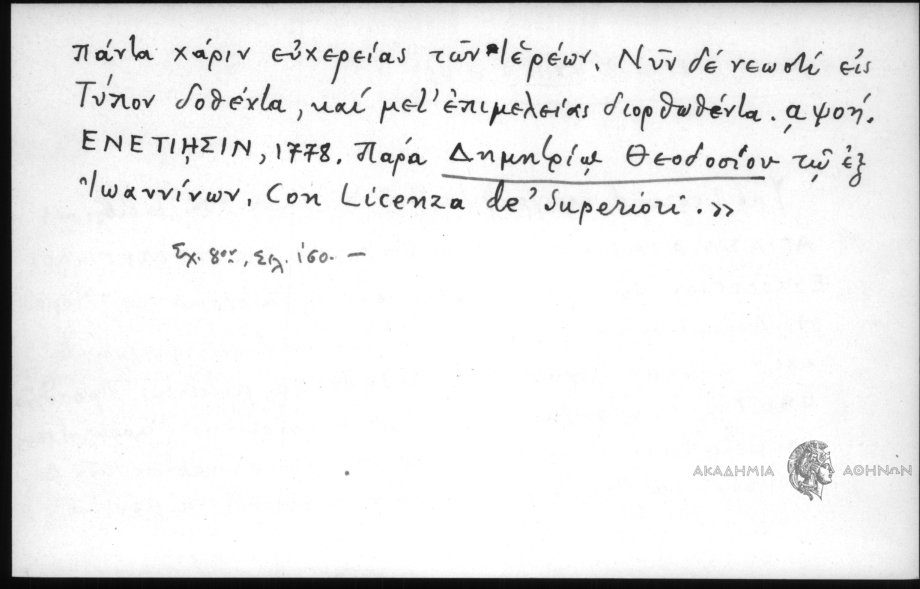 πάντα χάριν εὐχερείας τῶν Ἱερέων. Νῦν δέ νεωστί εἰς
Τύπον δοθέντα, καί μετ' ἐπιμελείας διορθωθέντα. αψοή.
ΕΝΕΤΙῌΣΙΝ, 1778. Παρά Δημητρίῳ Θεοδοσίου τῷ ἐξ
Ἰωαννίνων. Con Licenza de' Superiori.»
Σχ. 8ον, Σελ. 160. —
ΑΚΑΔΗΜΙΑ ΑΘΗΝΩΝ